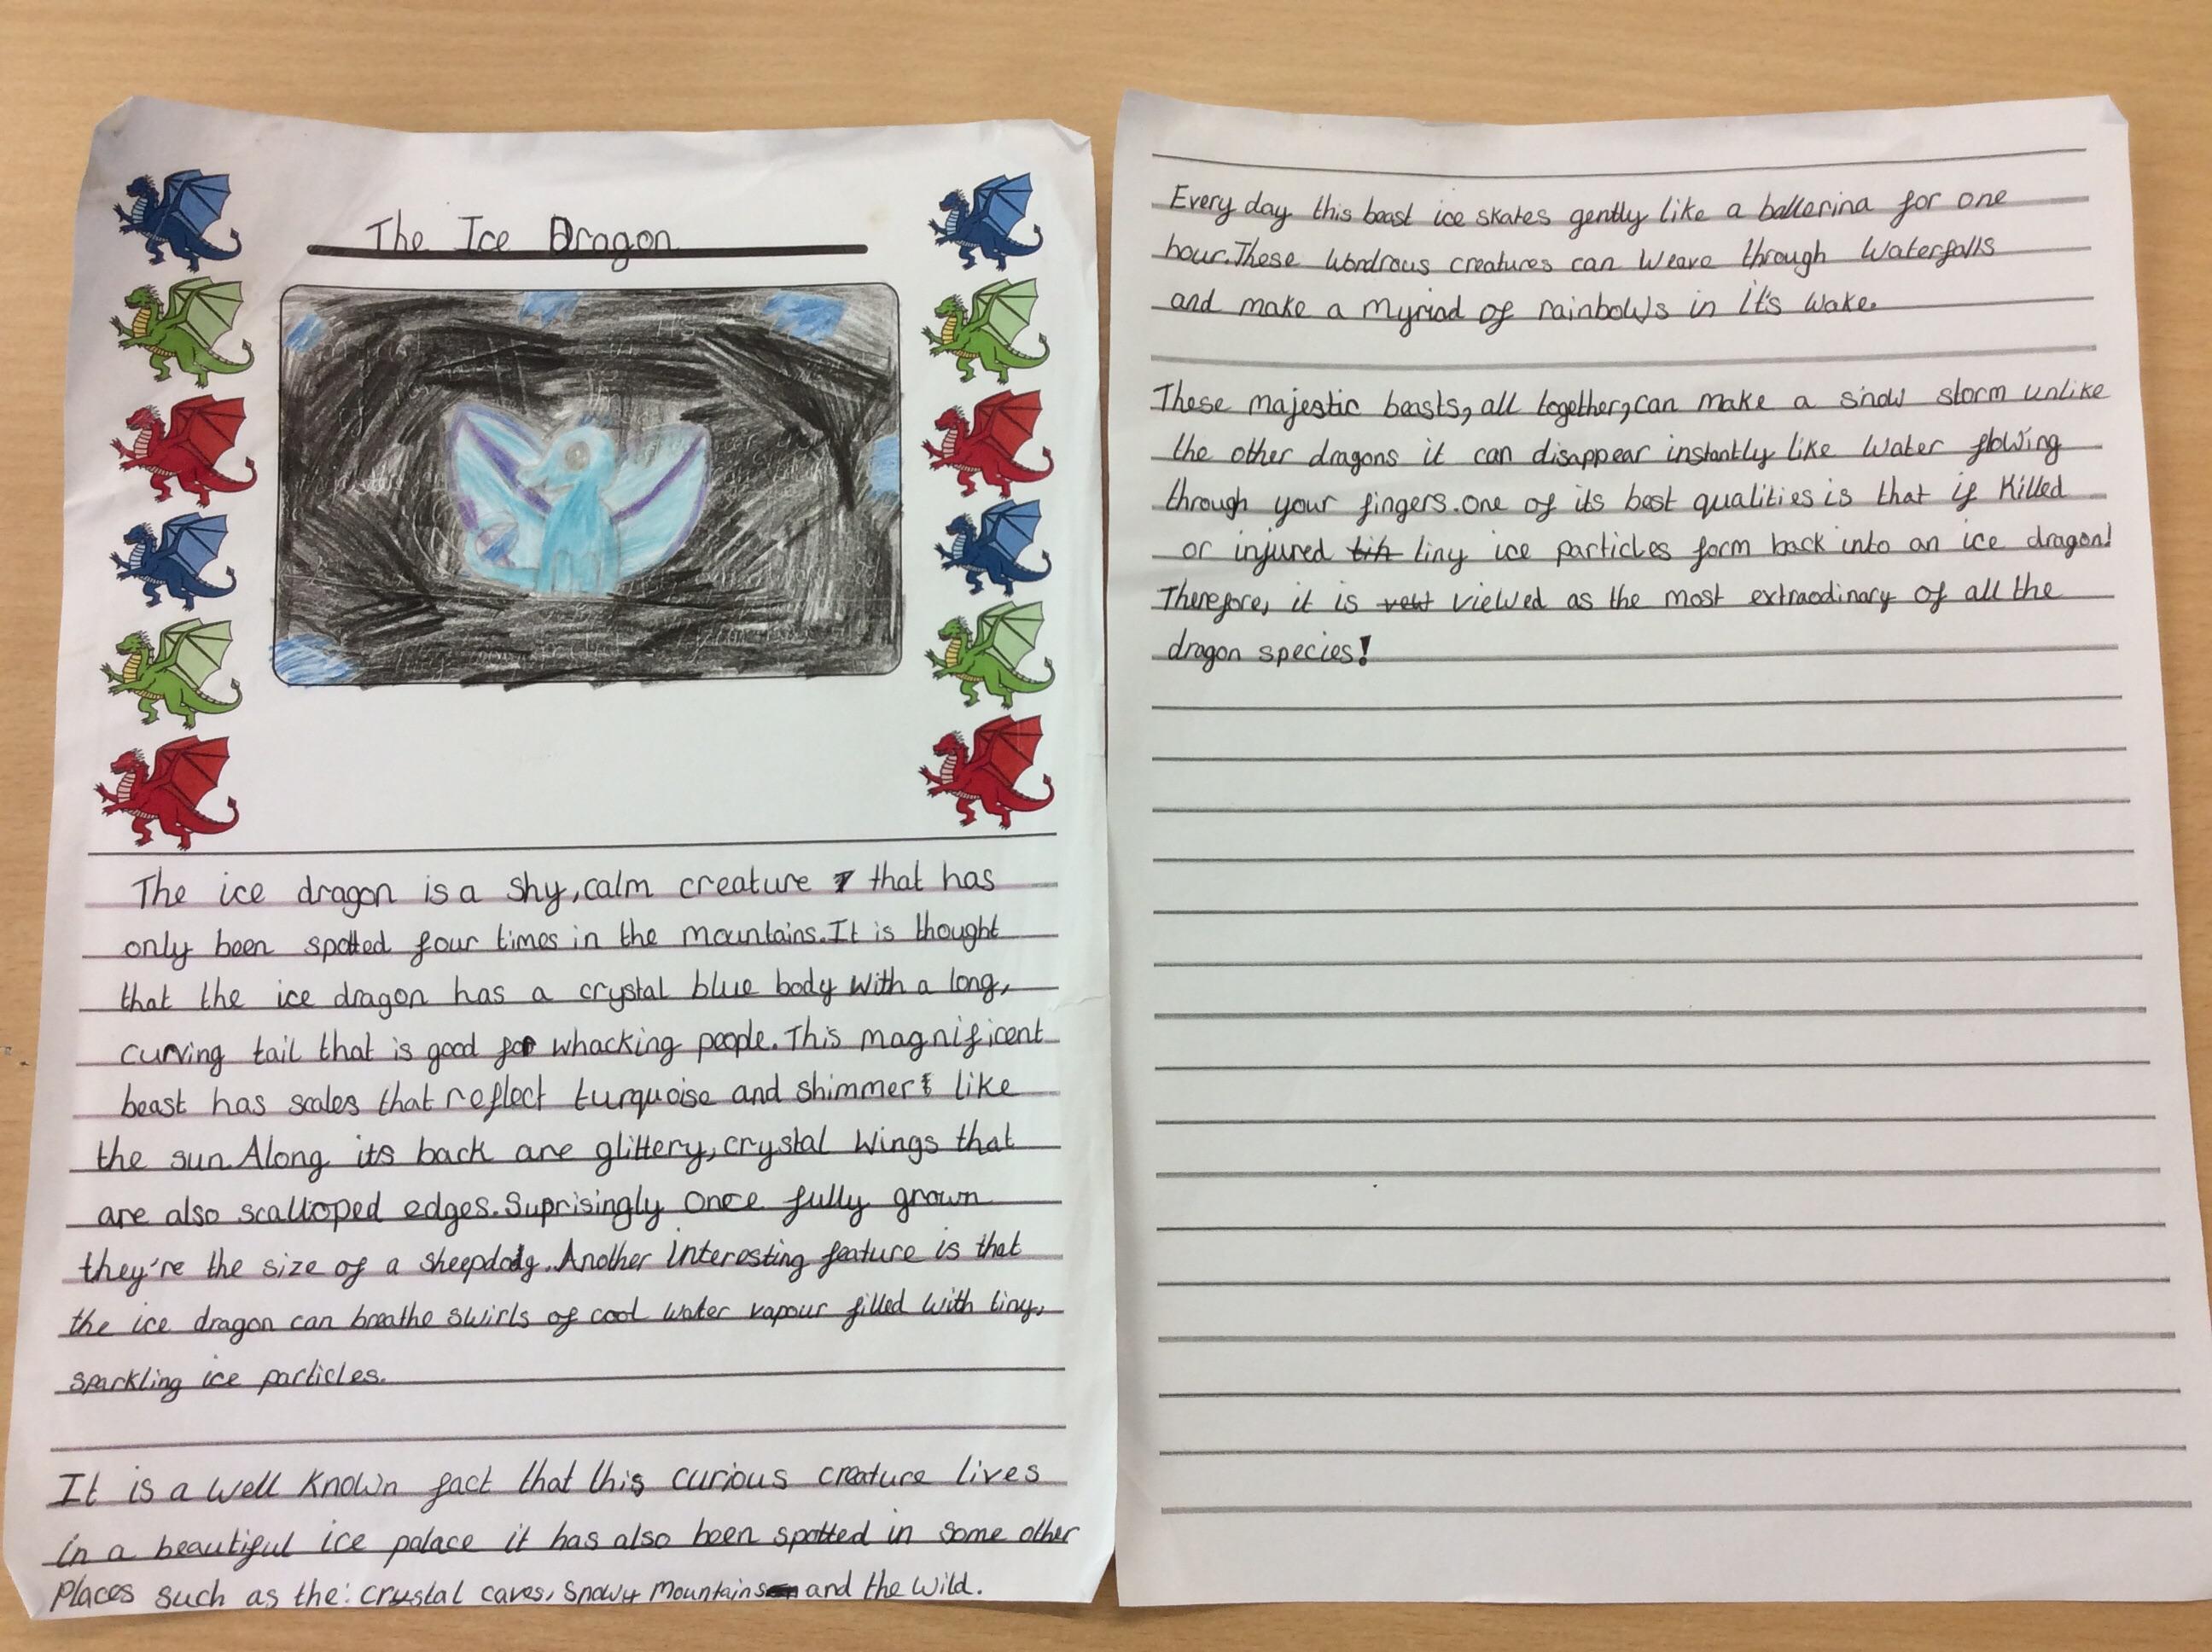 The Ice Dragon
The ice dragon is a shy, calm creature that has
only been spotted four times in the mountains. It is thought
that the ice dragon has a crystal blue body with a long,
curving tail that is good for whacking people. This magnificent
beast has scales that reflect turquoise and shimmer like
the sun. Along its back are glittery, crystal wings that
are also scalloped edges. Suprisingly once fully grown
they're the size of a sheepdog. Another interesting feature is that
the ice dragon can breathe swirls of cool water vapour filled with tiny,
sparkling ice particles.
It is a well known fact that this curious creature lives
in a beautiful ice palace it has also been spotted in some other
places such as the: crystal caves, snowy mountains and the wild.
Every day this beast ice skates gently like a ballerina for one
hour. These wondrous creatures can weave through waterfalls
and make a myriad of rainbows in it's wake.
These majestic beasts, all together, can make a snow storm unlike
the other dragons it can disappear instantly like water flowing
through your fingers. One of its best qualities is that if killed
or injured tih tiny ice particles form back into an ice dragon!
Therefore, it is viewed as the most extraodinary of all the
dragon species!